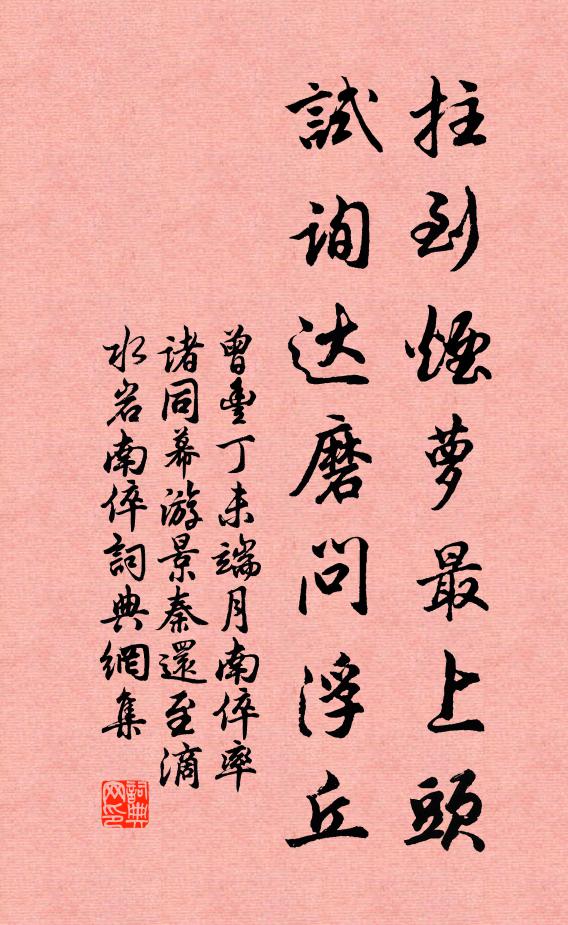 拄到煙萝最上頭
試询达磨問浮丘
曾豊丁未端月南倅率
诸同幕游景秦還至滴
水岩南倅詞典網集
詞典
网印